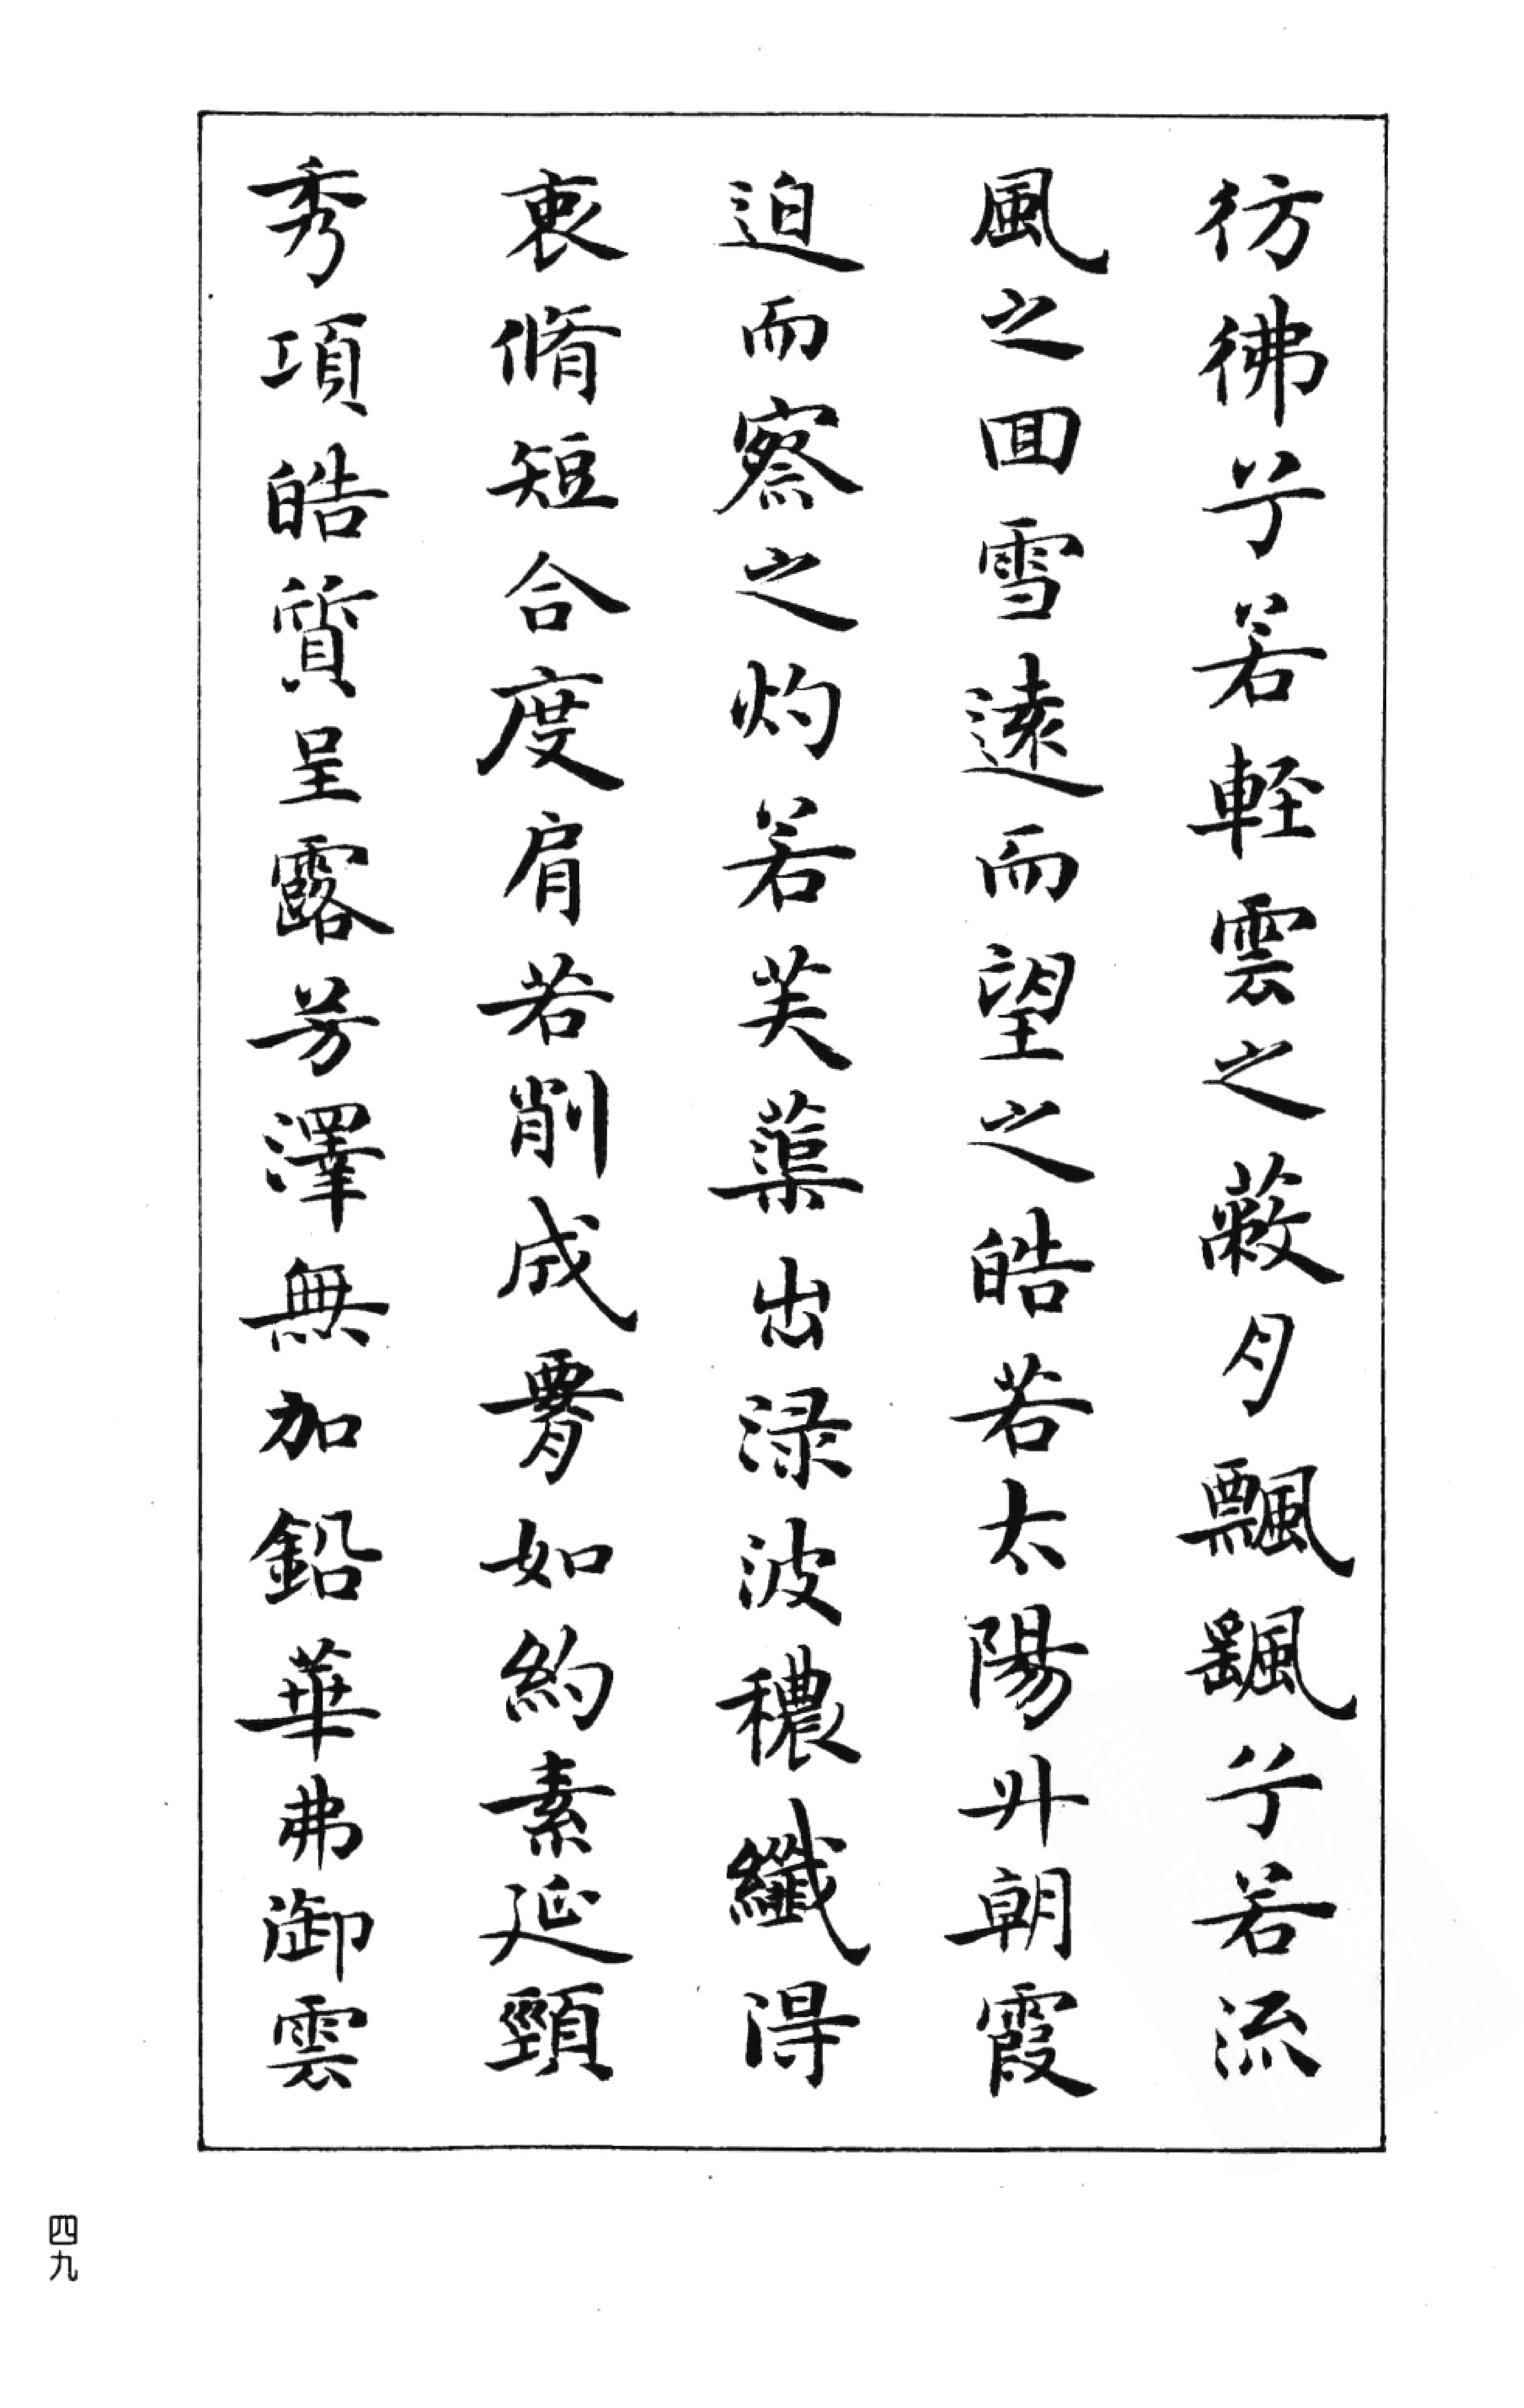 彷彿兮若輕雲之蔽月飄颻兮若流
風之囬雪遠而望之皓若太陽升朝霞
迫而察之灼若芙蕖出渌波穠纖得
衷脩短合度肩若削成𦝫如約素延頸
秀項皓質呈露芳澤無加鉛華弗御雲
四九